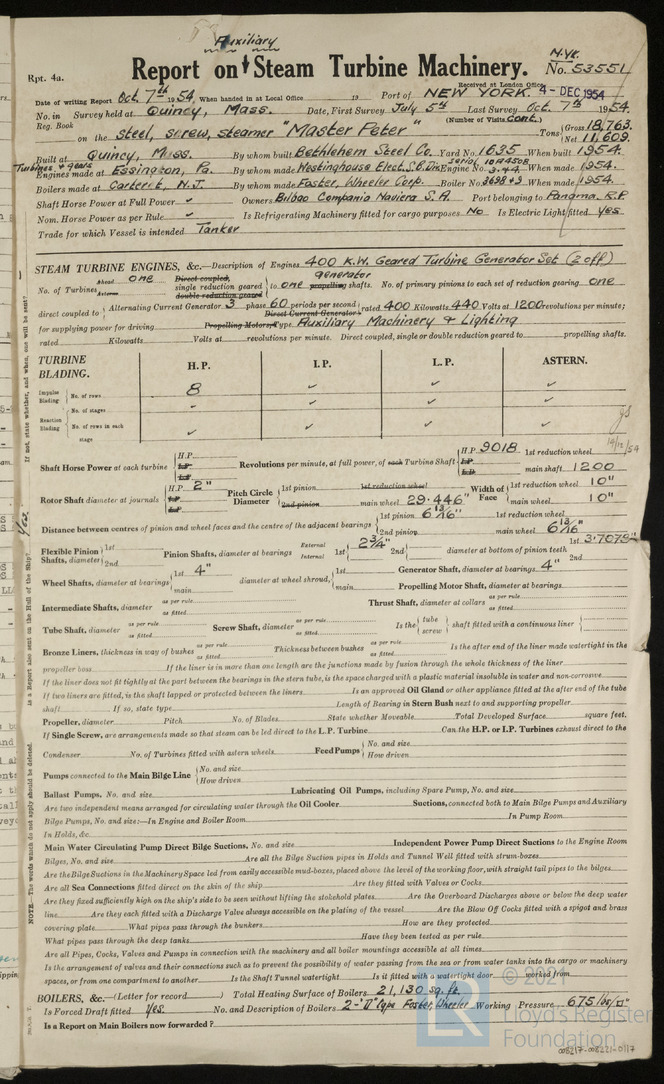 Auxiliary
Rpt. 4a.
Report on Steam Turbine Machinery. N.Yk. No. 53551
Received at London Office 4 - DEC 1954
Date of writing Report Oct. 7th 1954. When handed in at Local Office 19 Port of NEW YORK.
No. in Reg. Book Survey held at Quincy, Mass. Date, First Survey July 5th Last Survey Oct. 7th 1954.
(Number of Visits Cont.)
on the steel, screw, steamer "Master Peter" Tons { Gross 18,763. Net 11,609.
Built at Quincy, Mass. By whom built Bethlehem Steel Co. Yard No. 1635 When built 1954.
Turbines & gears
Engines made at Essington, Pa. By whom made Westinghouse Elect. Engine No. When made 1954.
Boilers made at Carteret, N.J. By whom made Foster, Wheeler Corp. Boiler No. When made 1954.
Shaft Horse Power at Full Power ✓ Owners Bilbao Compania Naviera S.A. Port belonging to Panama, R.P.
Nom. Horse Power as per Rule ✓ Is Refrigerating Machinery fitted for cargo purposes No Is Electric Light fitted Yes
Trade for which Vessel is intended Tanker
STEAM TURBINE ENGINES, &c.—Description of Engines 400 K.W. Geared Turbine Generator Set (2 off)
No. of Turbines Ahead one Astern Direct coupled, single reduction geared double reduction geared } to one generator propelling shafts. No. of primary pinions to each set of reduction gearing one
direct coupled to { Alternating Current Generator 3 phase 60 periods per second Direct Current Generator } rated 400 Kilowatts 440 Volts at 1200 revolutions per minute;
for supplying power for driving Propelling Motors, Type Auxiliary Machinery & Lighting
rated Kilowatts Volts at revolutions per minute. Direct coupled, single or double reduction geared to propelling shafts.
TURBINE BLADING. H.P. I.P. L.P. ASTERN.
Impulse Blading { No. of rows 8 ✓ ✓ ✓
No. of stages ✓ ✓ ✓ ✓
Reaction Blading { No. of rows in each stage ✓ ✓ ✓ ✓
14/12/54
Shaft Horse Power at each turbine { H.P. I.P. L.P. Revolutions per minute, at full power, of each Turbine Shaft { H.P. 9018 I.P. L.P. 1st reduction wheel main shaft 1200
Rotor Shaft diameter at journals { H.P. 2" I.P. L.P. Pitch Circle Diameter { 1st pinion 2nd pinion 1st reduction wheel main wheel 29.446" Width of Face { 1st reduction wheel 10" main wheel 10"
Distance between centres of pinion and wheel faces and the centre of the adjacent bearings { 1st pinion 6 13/16" 2nd pinion 1st reduction wheel main wheel 6 13/16"
Flexible Pinion Shafts, diameter { 1st 2nd Pinion Shafts, diameter at bearings External Internal 1st 2 3/4" 2nd diameter at bottom of pinion teeth 1st 3.7079" 2nd
Wheel Shafts, diameter at bearings { 1st 4" main diameter at wheel shroud, { 1st main Generator Shaft, diameter at bearings 4" Propelling Motor Shaft, diameter at bearings
Intermediate Shafts, diameter as per rule as fitted Thrust Shaft, diameter at collars as per rule as fitted
Tube Shaft, diameter as per rule as fitted Screw Shaft, diameter as per rule as fitted Is the { tube screw } shaft fitted with a continuous liner {
Bronze Liners, thickness in way of bushes as per rule as fitted Thickness between bushes as per rule as fitted Is the after end of the liner made watertight in the
propeller boss If the liner is in more than one length are the junctions made by fusion through the whole thickness of the liner
If the liner does not fit tightly at the part between the bearings in the stern tube, is the space charged with a plastic material insoluble in water and non-corrosive
If two liners are fitted, is the shaft lapped or protected between the liners Is an approved Oil Gland or other appliance fitted at the after end of the tube
shaft If so, state type Length of Bearing in Stern Bush next to and supporting propeller
Propeller, diameter Pitch No. of Blades State whether Moveable Total Developed Surface square feet.
If Single Screw, are arrangements made so that steam can be led direct to the L.P. Turbine Can the H.P. or I.P. Turbines exhaust direct to the
Condenser No. of Turbines fitted with astern wheels Feed Pumps { No. and size How driven
Pumps connected to the Main Bilge Line { No. and size How driven
Ballast Pumps, No. and size Lubricating Oil Pumps, including Spare Pump, No. and size
Are two independent means arranged for circulating water through the Oil Cooler Suctions, connected both to Main Bilge Pumps and Auxiliary
Bilge Pumps, No. and size:—In Engine and Boiler Room In Pump Room
In Holds, &c.
Main Water Circulating Pump Direct Bilge Suctions, No. and size Independent Power Pump Direct Suctions to the Engine Room
Bilges, No. and size Are all the Bilge Suction pipes in Holds and Tunnel Well fitted with strum-boxes
Are the Bilge Suctions in the Machinery Space led from easily accessible mud-boxes, placed above the level of the working floor, with straight tail pipes to the bilges
Are all Sea Connections fitted direct on the skin of the ship Are they fitted with Valves or Cocks
Are they fixed sufficiently high on the ship's side to be seen without lifting the stokehold plates Are the Overboard Discharges above or below the deep water
line Are they each fitted with a Discharge Valve always accessible on the plating of the vessel Are the Blow Off Cocks fitted with a spigot and brass
covering plate What pipes pass through the bunkers How are they protected
What pipes pass through the deep tanks Have they been tested as per rule
Are all Pipes, Cocks, Valves and Pumps in connection with the machinery and all boiler mountings accessible at all times
Is the arrangement of valves and their connections such as to prevent the possibility of water passing from the sea or from water tanks into the cargo or machinery
spaces, or from one compartment to another Is the Shaft Tunnel watertight Is it fitted with a watertight door worked from
BOILERS, &c.—(Letter for record ) Total Heating Surface of Boilers 21,130 sq. ft.
Is Forced Draft fitted Yes No. and Description of Boilers 2-"D" type Foster, Wheeler Working Pressure 675 lbs/□"
Is a Report on Main Boilers now forwarded?
© 2021
LR
Lloyd's Register
Foundation
008217-008221-0117